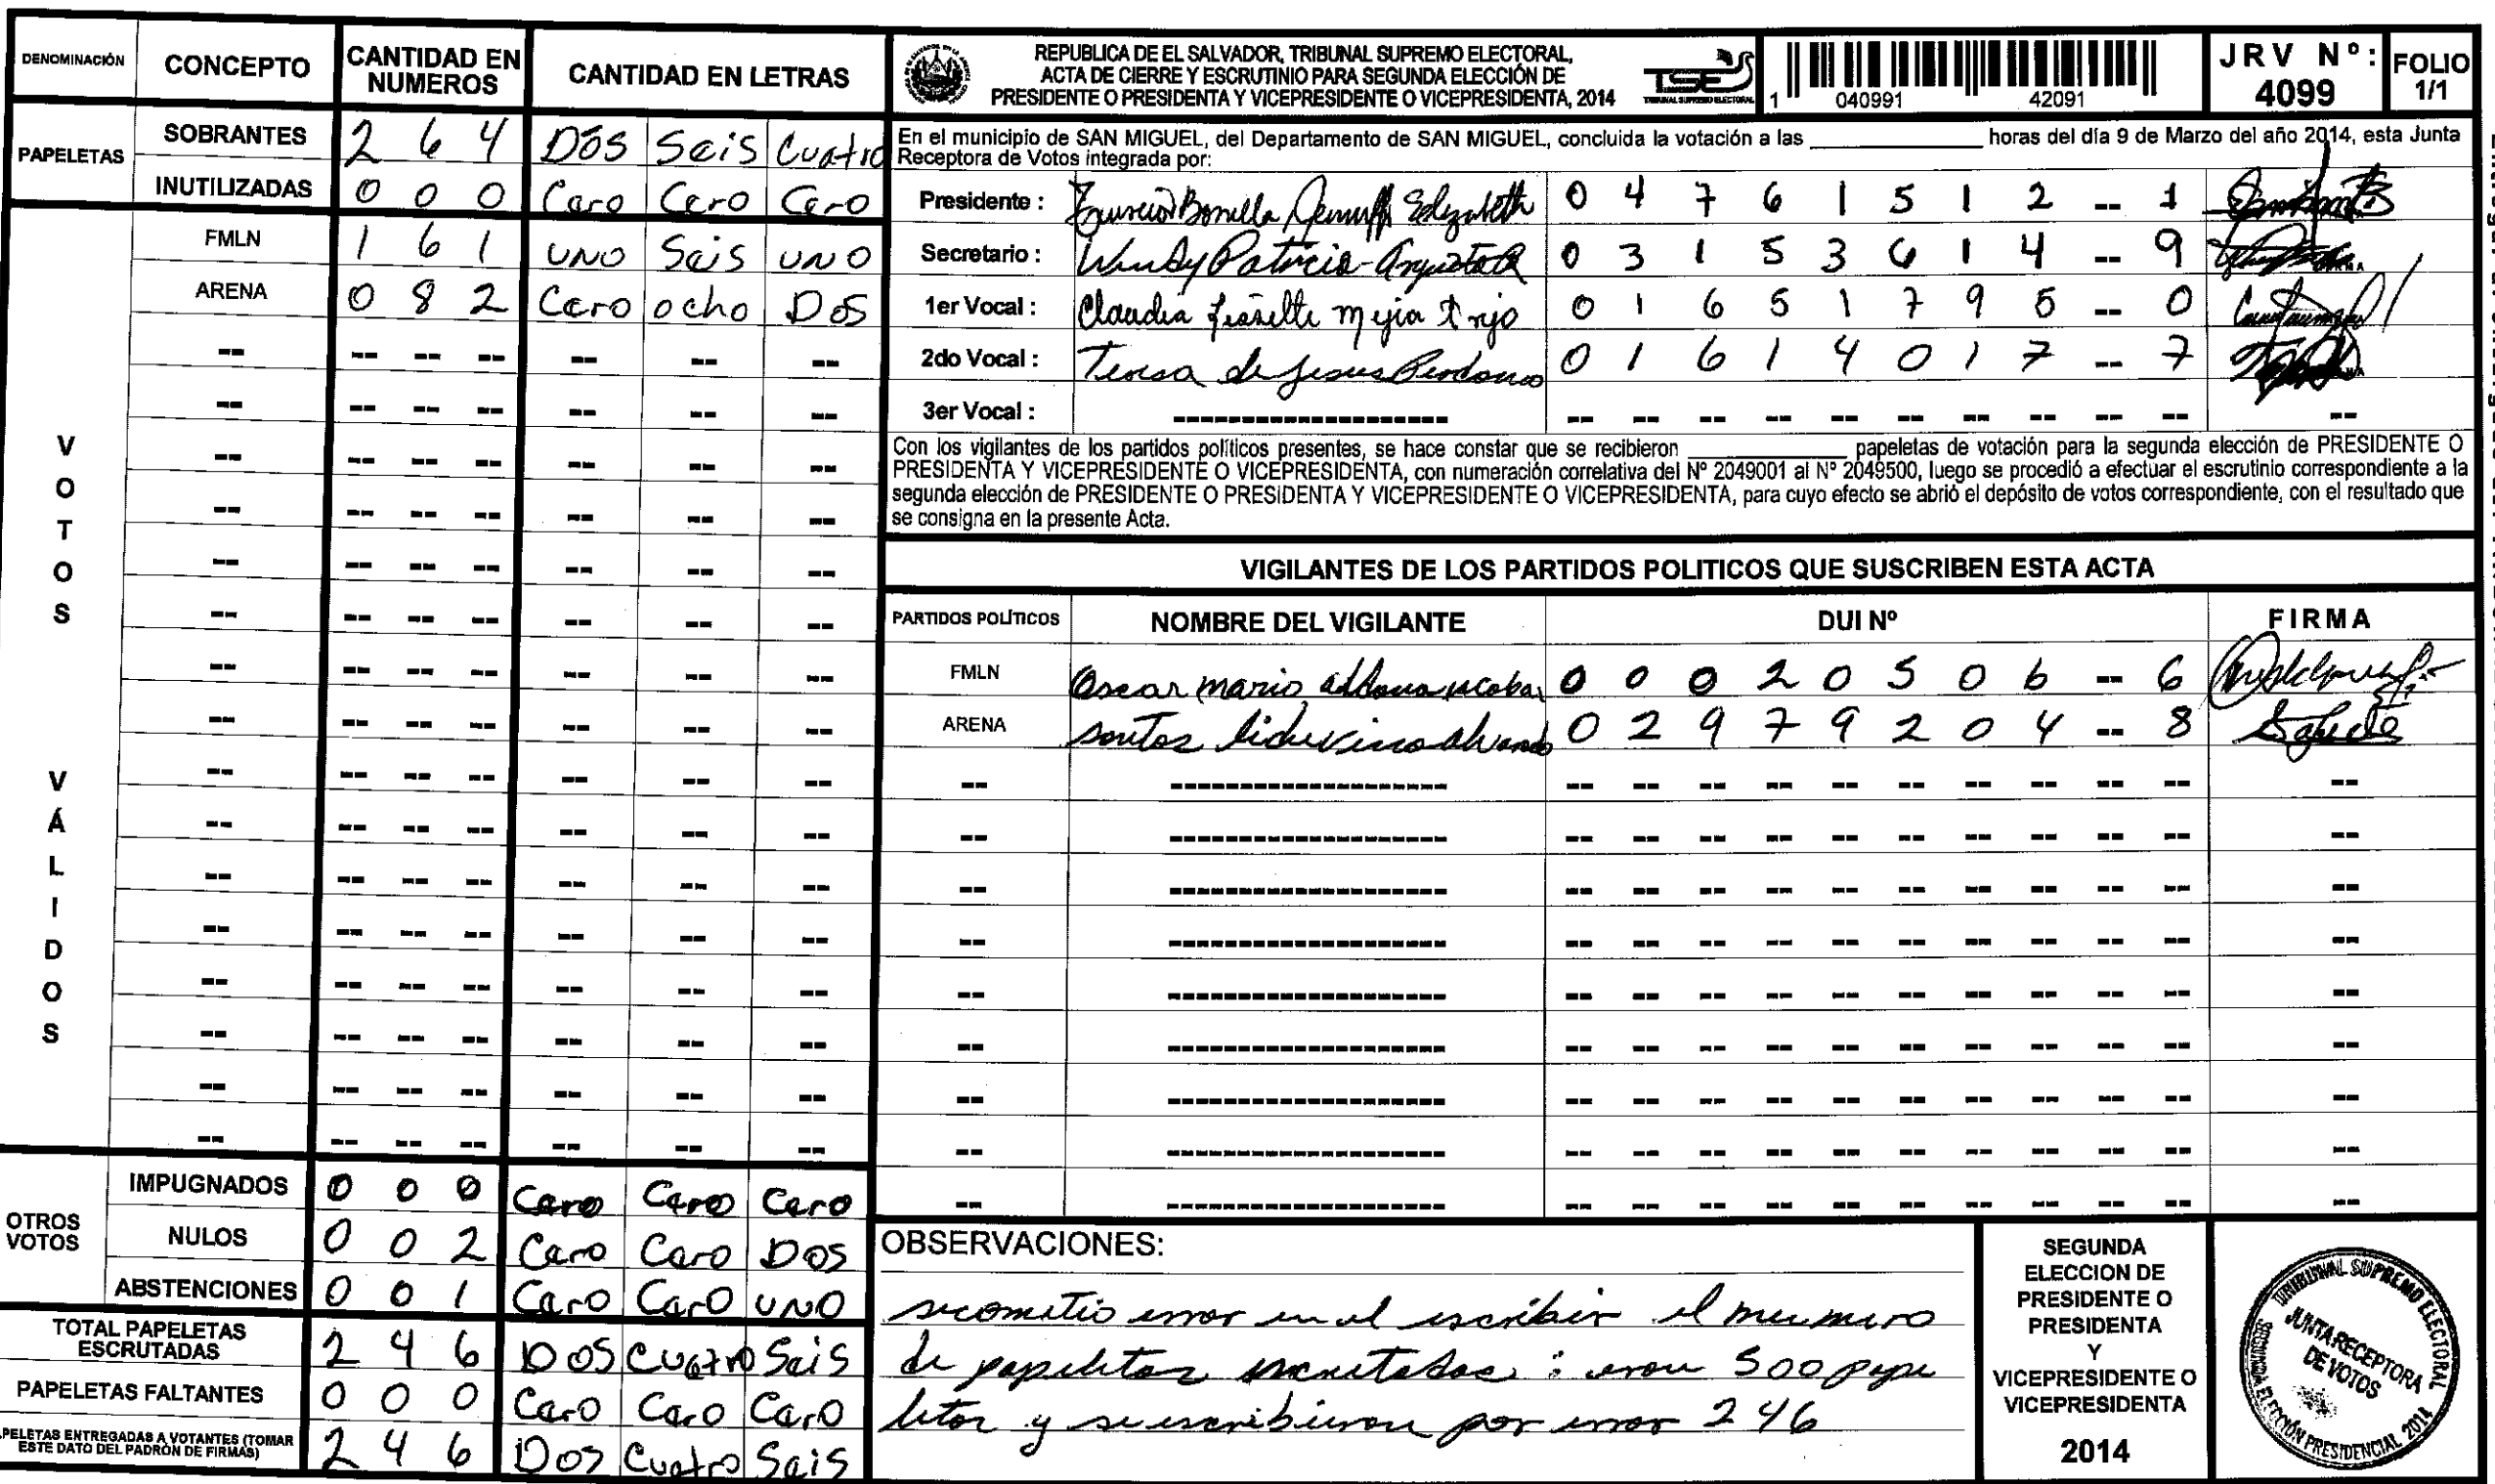 DENOMINACIÓN CONCEPTO CANTIDAD EN NUMEROS CANTIDAD EN LETRAS
PAPELETAS
SOBRANTES 2 6 4 DOS Seis Cuatro
INUTILIZADAS 0 0 0 Cero Cero Cero
VOTOS VÁLIDOS
FMLN 1 6 1 UNO Seis UNO
ARENA 0 8 2 Cero ocho DOS
OTROS VOTOS
IMPUGNADOS 0 0 0 Cero Cero Cero
NULOS 0 0 2 Cero Cero DOS
ABSTENCIONES 0 0 1 Cero Cero UNO
TOTAL PAPELETAS ESCRUTADAS 2 4 6 DOS Cuatro Seis
PAPELETAS FALTANTES 0 0 0 Cero Cero Cero
PELETAS ENTREGADAS A VOTANTES (TOMAR ESTE DATO DEL PADRÓN DE FIRMAS) 2 4 6 Dos Cuatro Seis
REPUBLICA DE EL SALVADOR, TRIBUNAL SUPREMO ELECTORAL,
ACTA DE CIERRE Y ESCRUTINIO PARA SEGUNDA ELECCIÓN DE
PRESIDENTE O PRESIDENTA Y VICEPRESIDENTE O VICEPRESIDENTA, 2014
TSE
TRIBUNAL SUPREMO ELECTORAL
1 040991 42091
JRV Nº: 4099
FOLIO 1/1
En el municipio de SAN MIGUEL, del Departamento de SAN MIGUEL, concluida la votación a las ____ horas del día 9 de Marzo del año 2014, esta Junta
Receptora de Votos integrada por:
Presidente : Bonilla Elizabeth 0 4 7 6 1 5 1 2 -- 1
Secretario : Wendy Patricia 0 3 1 5 3 6 1 4 -- 9
1er Vocal : Claudia mejia 0 1 6 5 1 7 9 5 -- 0
2do Vocal : Teresa de Jesus Perdomo 0 1 6 1 4 0 1 7 -- 7
3er Vocal :
Con los vigilantes de los partidos políticos presentes, se hace constar que se recibieron ____ papeletas de votación para la segunda elección de PRESIDENTE O
PRESIDENTA Y VICEPRESIDENTE O VICEPRESIDENTA, con numeración correlativa del Nº 2049001 al Nº 2049500, luego se procedió a efectuar el escrutinio correspondiente a la
segunda elección de PRESIDENTE O PRESIDENTA Y VICEPRESIDENTE O VICEPRESIDENTA, para cuyo efecto se abrió el depósito de votos correspondiente, con el resultado que
se consigna en la presente Acta.
VIGILANTES DE LOS PARTIDOS POLITICOS QUE SUSCRIBEN ESTA ACTA
PARTIDOS POLÍTICOS NOMBRE DEL VIGILANTE DUI Nº FIRMA
FMLN Oscar mario 0 0 0 2 0 5 0 6 -- 6
ARENA santos 0 2 9 7 9 2 0 4 -- 8
OBSERVACIONES:
secometio error en el escribir el
de papeletas escrutadas : eran 500 pape
letas y se escribieron por error 246
SEGUNDA
ELECCION DE
PRESIDENTE O
PRESIDENTA
Y
VICEPRESIDENTE O
VICEPRESIDENTA
2014
TRIBUNAL SUPREMO ELECTORAL
JUNTA RECEPTORA
DE VOTOS
ELECCIÓN PRESIDENCIAL 2014